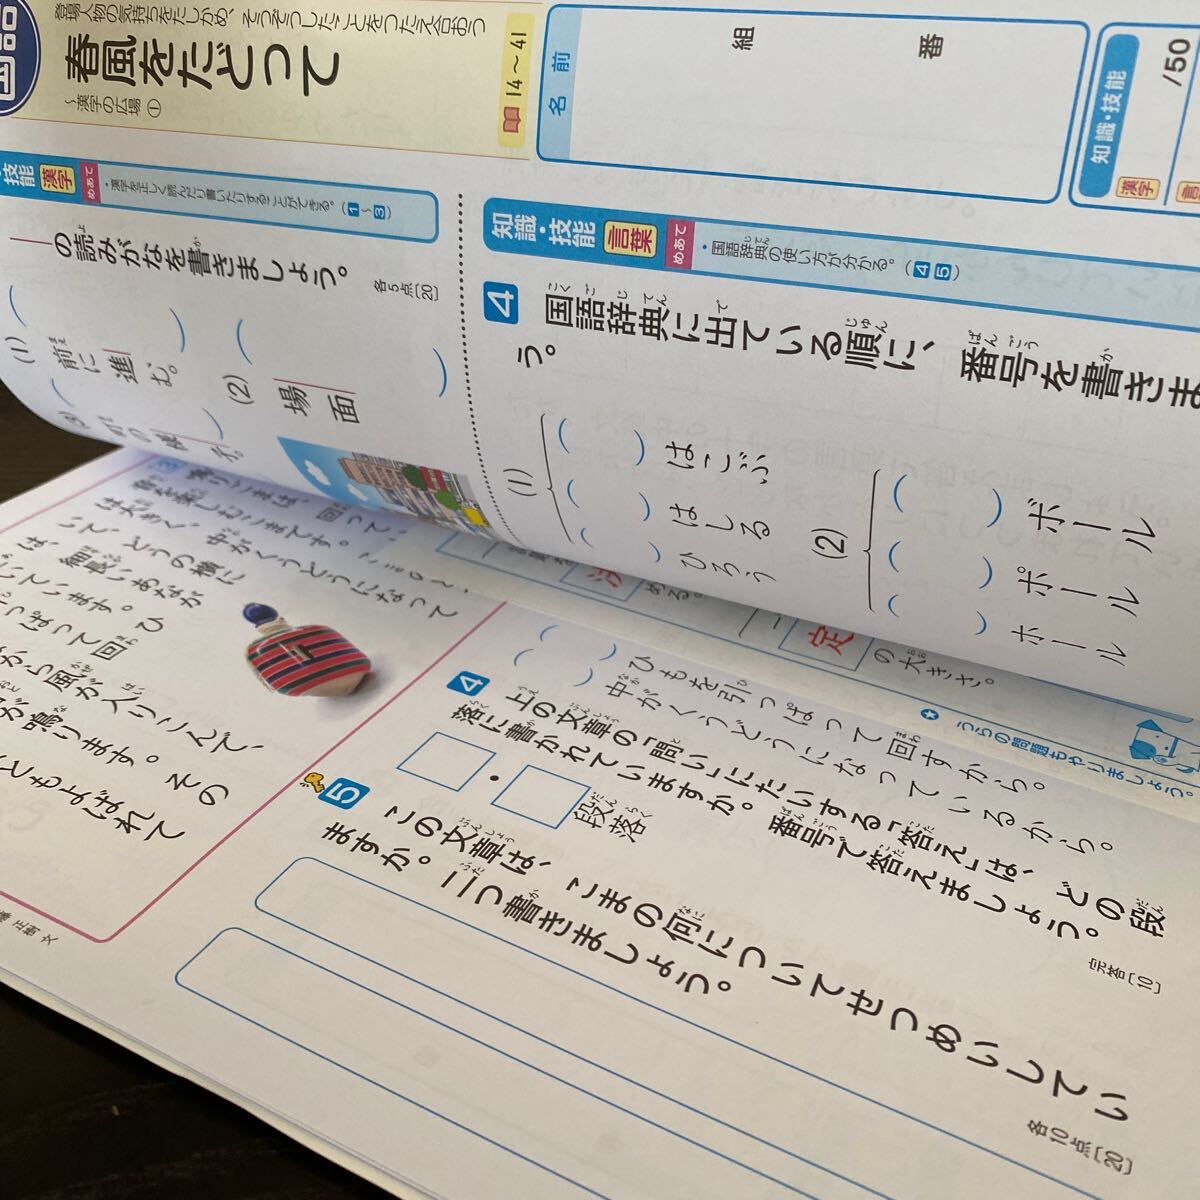 国語
登場人物の気持ちをたしかめ、そうぞうしたことをつたえ合おう
春風をたどって
〜漢字の広場①
14〜41
名前
組
番
知識・技能
/50
漢字
技能
漢字
めあて
・漢字を正しく読んだり書いたりすることができる。(1〜3)
の読みがなを書きましょう。
各5点[20]
(1)
前に進む。
(2)
場面
知識・技能
言葉
めあて
・国語辞典の使い方が分かる。(4 5)
4
国語辞典に出ている順に、番号を書きま
う。
(1)
はこぶ
はしる
ひろう
(2)
ボール
ポール
ホール
は大きく、中がくうどうになって
いて、どうの横に
は、細長いあなが
いています。ひ
っぱって回
から風が入りこんで、
が鳴ります。その
ともよばれて
正樹 文
定
の大きさ。
める。
うらの問題もやりましょう。
ひもを引っぱって回すから。
中がくうどうになっているから。
4
上の文章の「問い」にたいする「答え」は、どの段
落に書かれていますか。番号で答えましょう。
完答[10]
・
段落
5
この文章は、こまの何についてせつめいしてい
ますか。二つ書きましょう。
各10点[20]